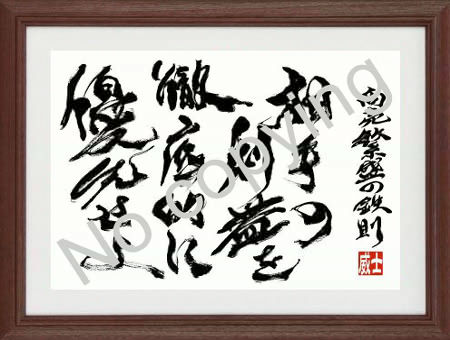 商売繁盛の鉄則
相手の
利益を
徹底的に
優先せよ
威士
No copying